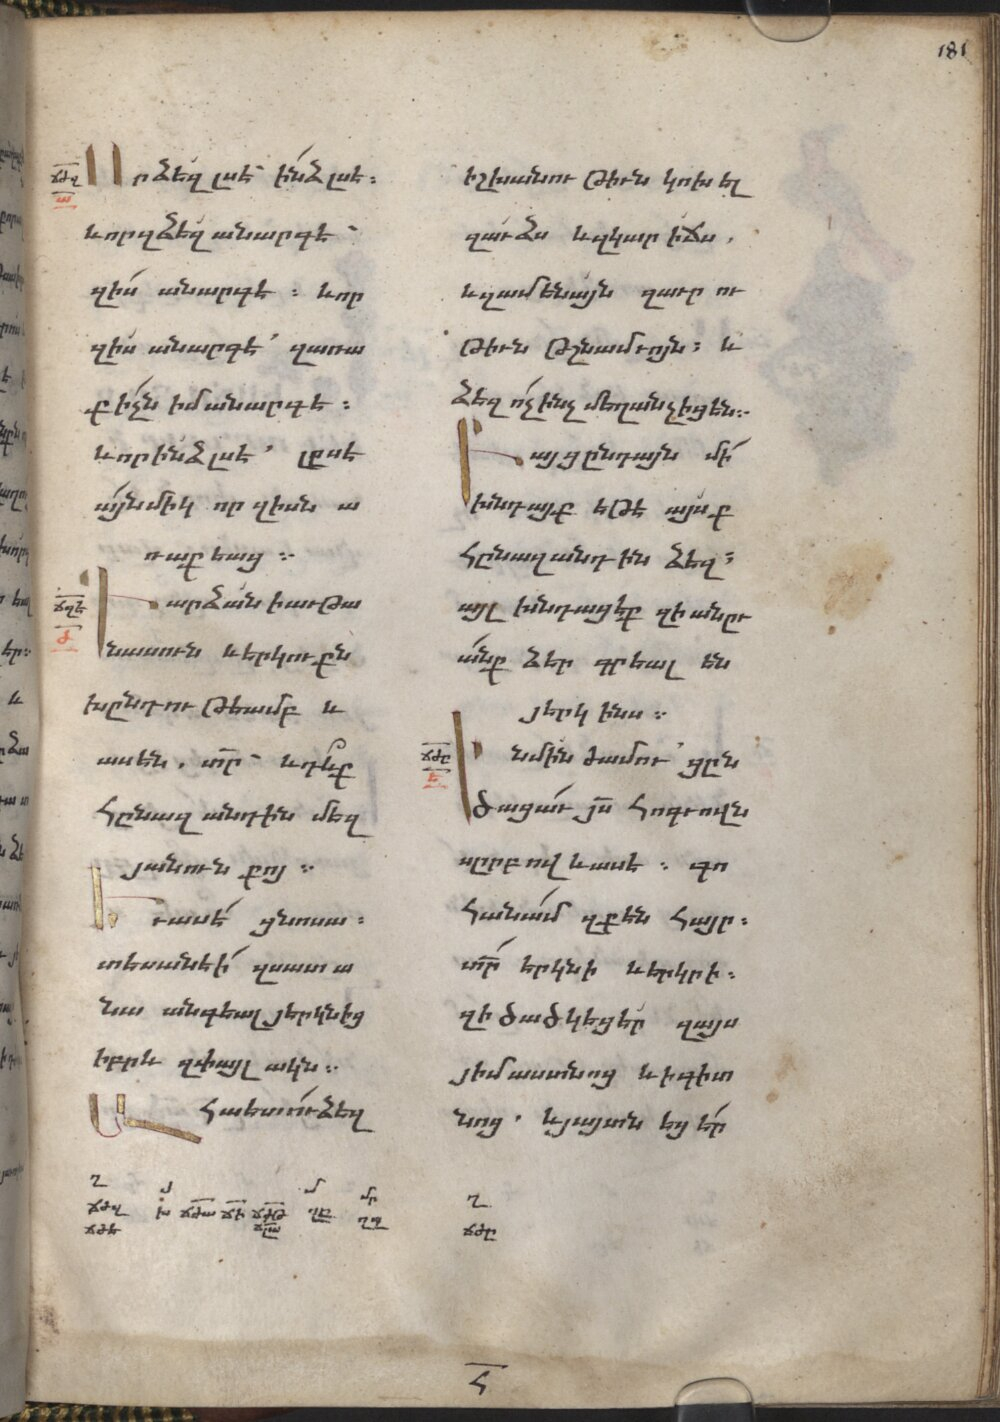 181
ՃԺԶ
Որ ձեզ լսե՝ ի՛նձ լսե։
և որ զձեզ անարգէ՝
զի՛ս անարգէ։ և որ
զիս անարգէ՝ զառա
քի՛չն իմ անարգէ։
և որ ինձ լսե՝ լըսե
ա՛յնմիկ որ զիսն ա
ռաքեաց։
ՃԺԷ
Դարձան իաւթա
նասուն և երկուքն
խընդութեամբ և
ասեն. տր՝ և դևք
հընազանդին մեզ
յանուն քոյ։
Եւ ասէ՛ ցնոսա։
տեսանեի՛ զսատա
նա անգեալ յերկնից
իբրև զփայլակն։
Ահա ետու՛ ձեզ
իշխանութիւն կոխել
զաւձս և զկարիճս,
և զամենայն զաւրու
թիւն թշնամւոյն։ և
ձեզ ո՛չինչ մեղանչիցեն։
Բայց ընդայն մի՛
խնդայք եթե այսք
հընազանդին ձեզ։
այլ խնդացեք զի անըւ
ա՛նք ձեր գրեալ են
յերկինս։
ՃԺԸ
Ե
Ի նմին ժամու՝ ցըն
ծացաւ յս հոգւովն
սըրբով և ասե։ գո
հանա՛մ զքեն հայր։
տր երկնի և երկրի։
զի ծածկեցեր զայս
յիմաստնոց և ի գիտ
նոց՝ և յայտնեցե՛ր
ՃԺԶ
ՃԺԷ
ՃԺԸ
Հ